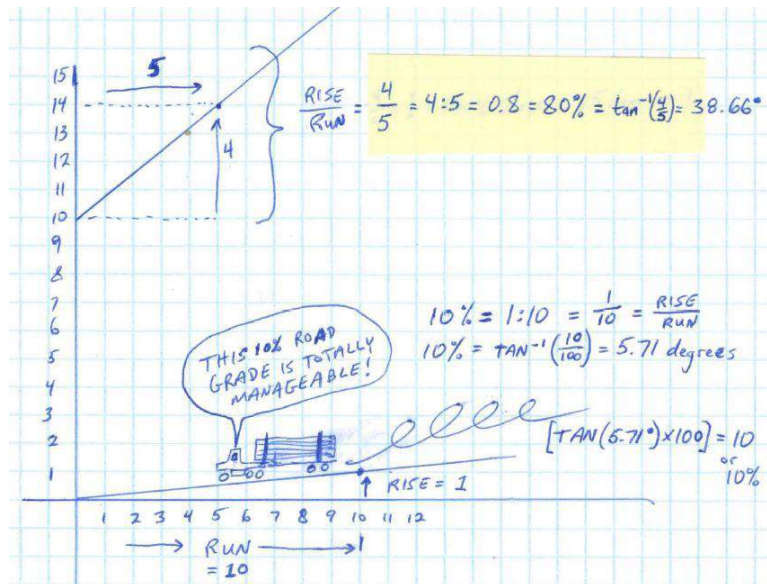 15
5
14
13
12
11
10
9
8
7
6
5
4
3
2
1
4
RISE/RUN = 4/5 = 4:5 = 0.8 = 80% = tan⁻¹(4/5) = 38.66°
10% = 1:10 = 1/10 = RISE/RUN
10% = TAN⁻¹(10/100) = 5.71 degrees
THIS 10% ROAD
GRADE IS TOTALLY
MANAGEABLE!
[TAN(5.71°)×100] = 10
or
10%
RISE = 1
1 2 3 4 5 6 7 8 9 10 11 12
RUN
= 10